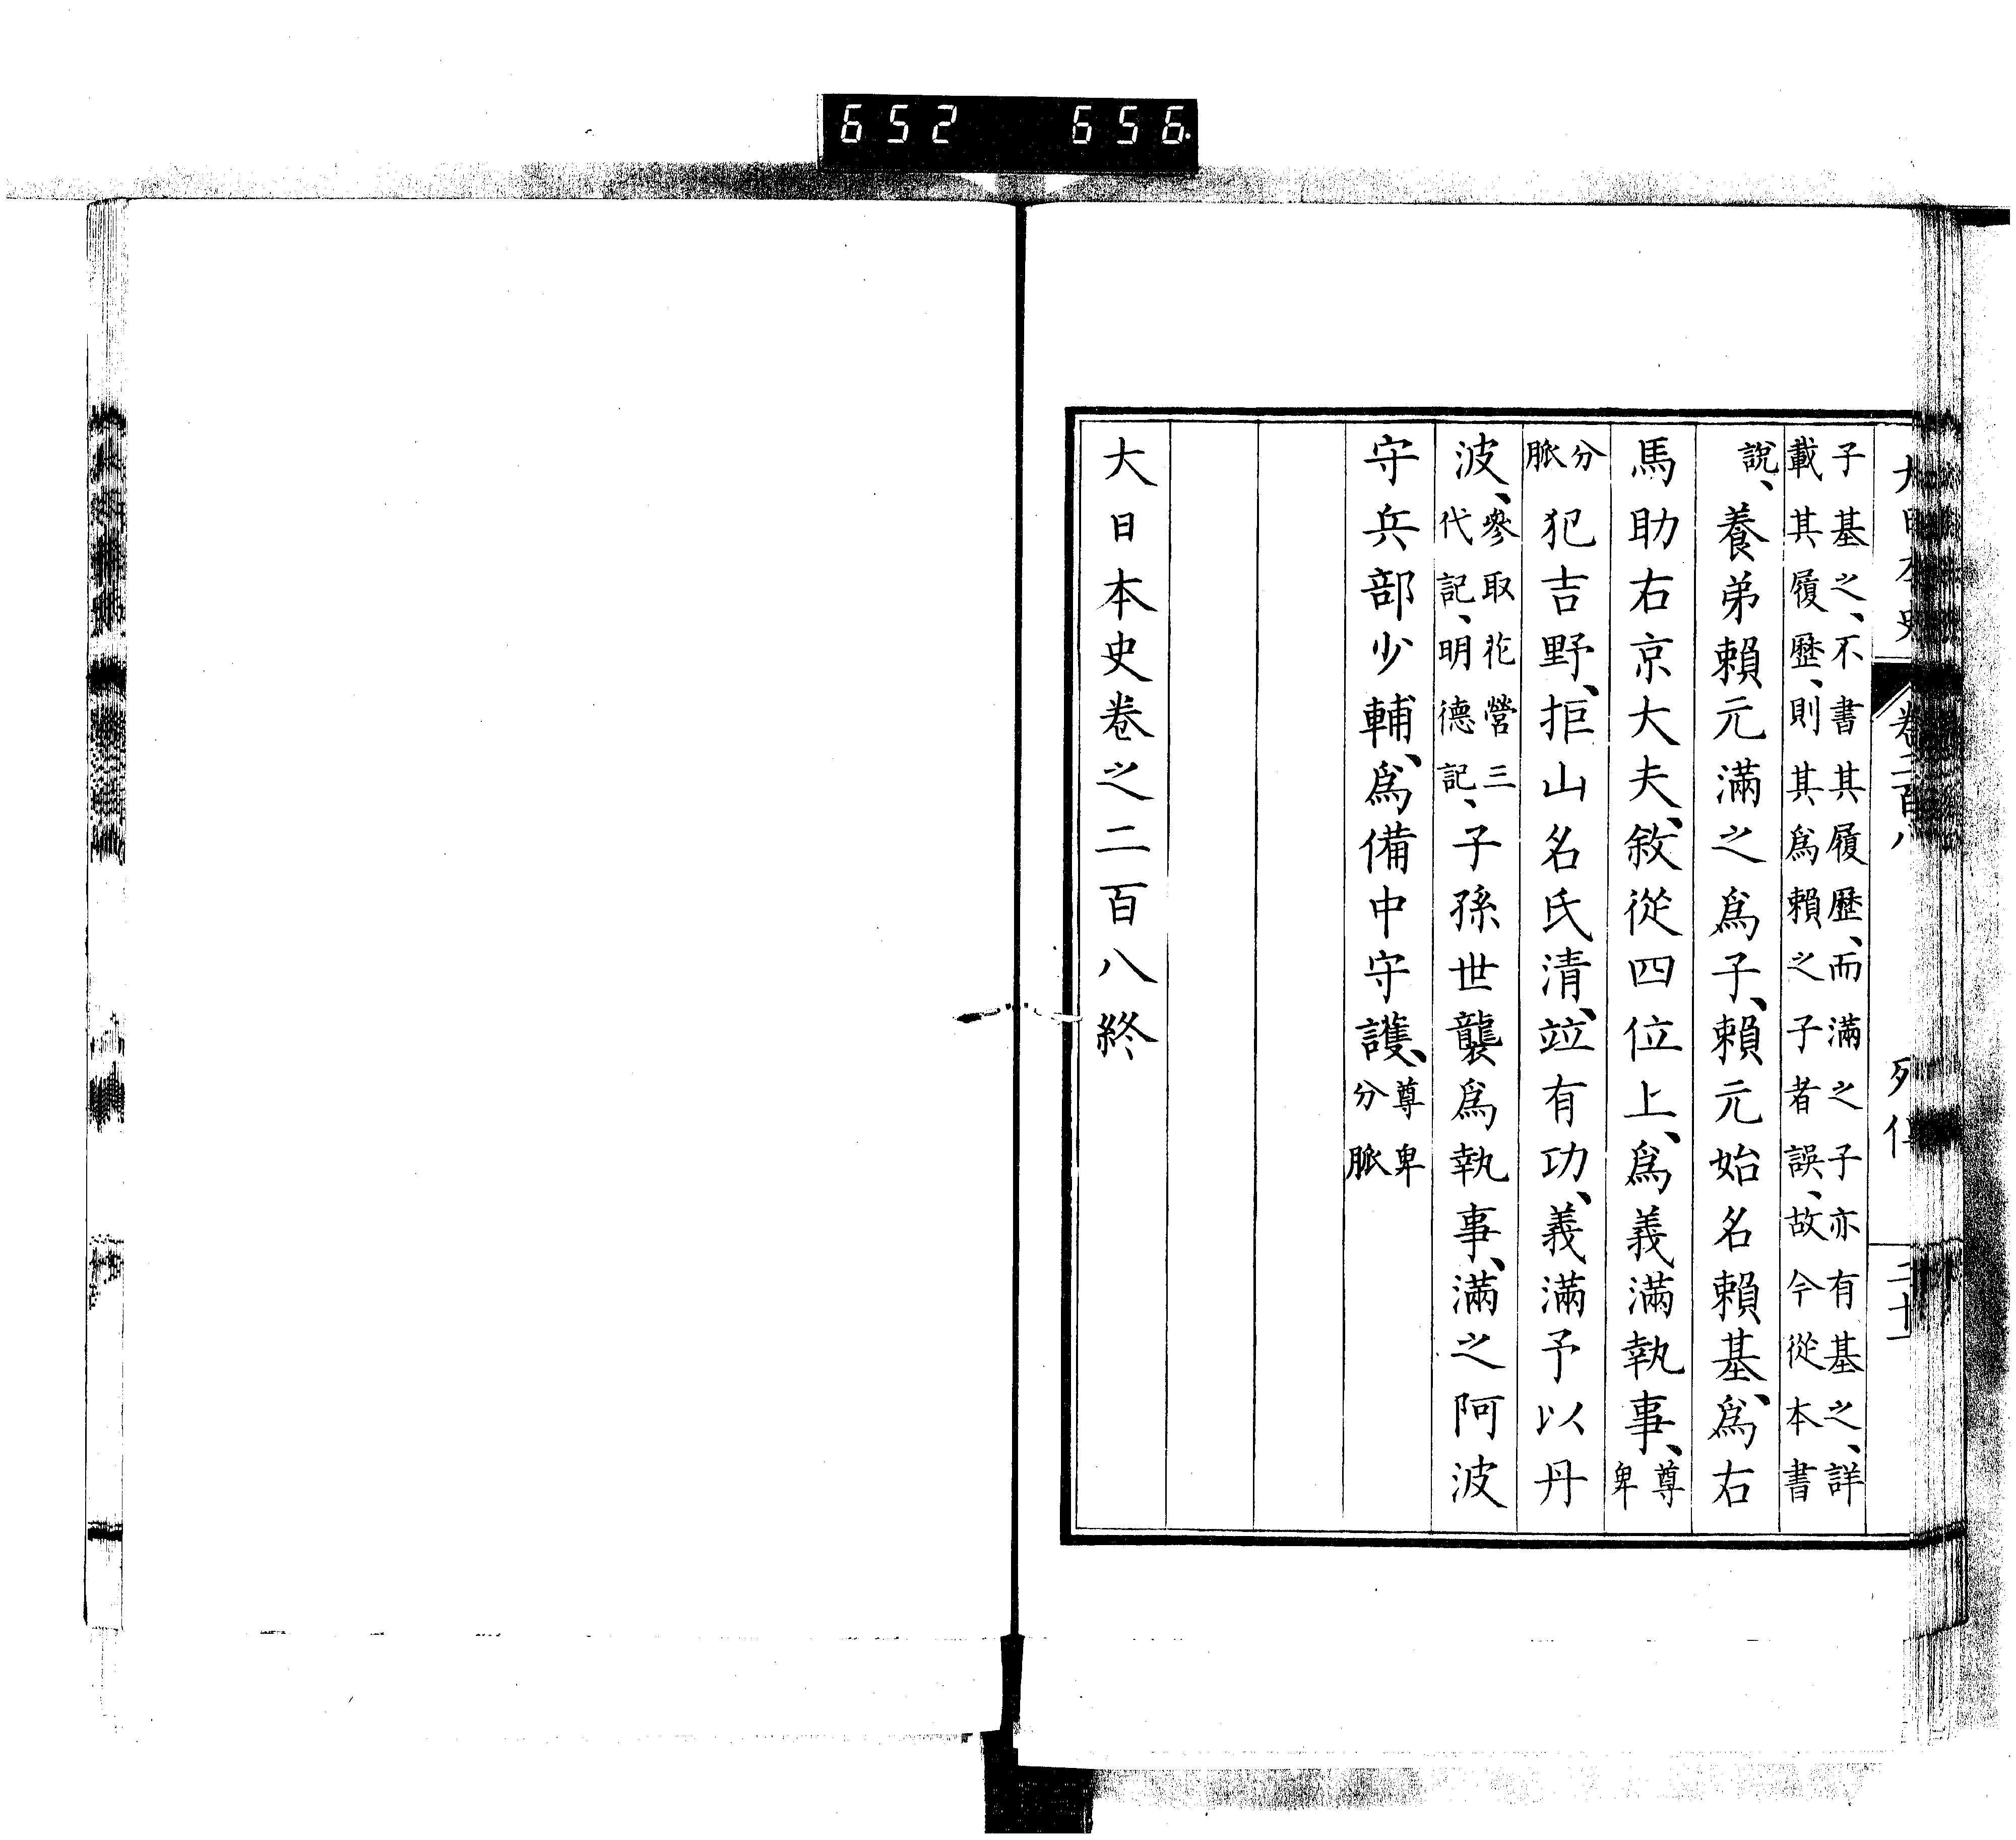 652 656
大日本史 卷二百八 列傳 二十
子基之、不書其履歷、而滿之子亦有基之、詳
載其履歷、則其爲賴之子者誤、故今從本書
說、養弟賴元滿之爲子、賴元始名賴基、爲右
馬助右京大夫、敘從四位上、爲義滿執事、尊卑
分脈犯吉野、拒山名氏清、竝有功、義滿予以丹
波、參取花營三代記、明德記、子孫世襲爲執事、滿之阿波
守兵部少輔、爲備中守護、尊卑分脈
大日本史卷之二百八終